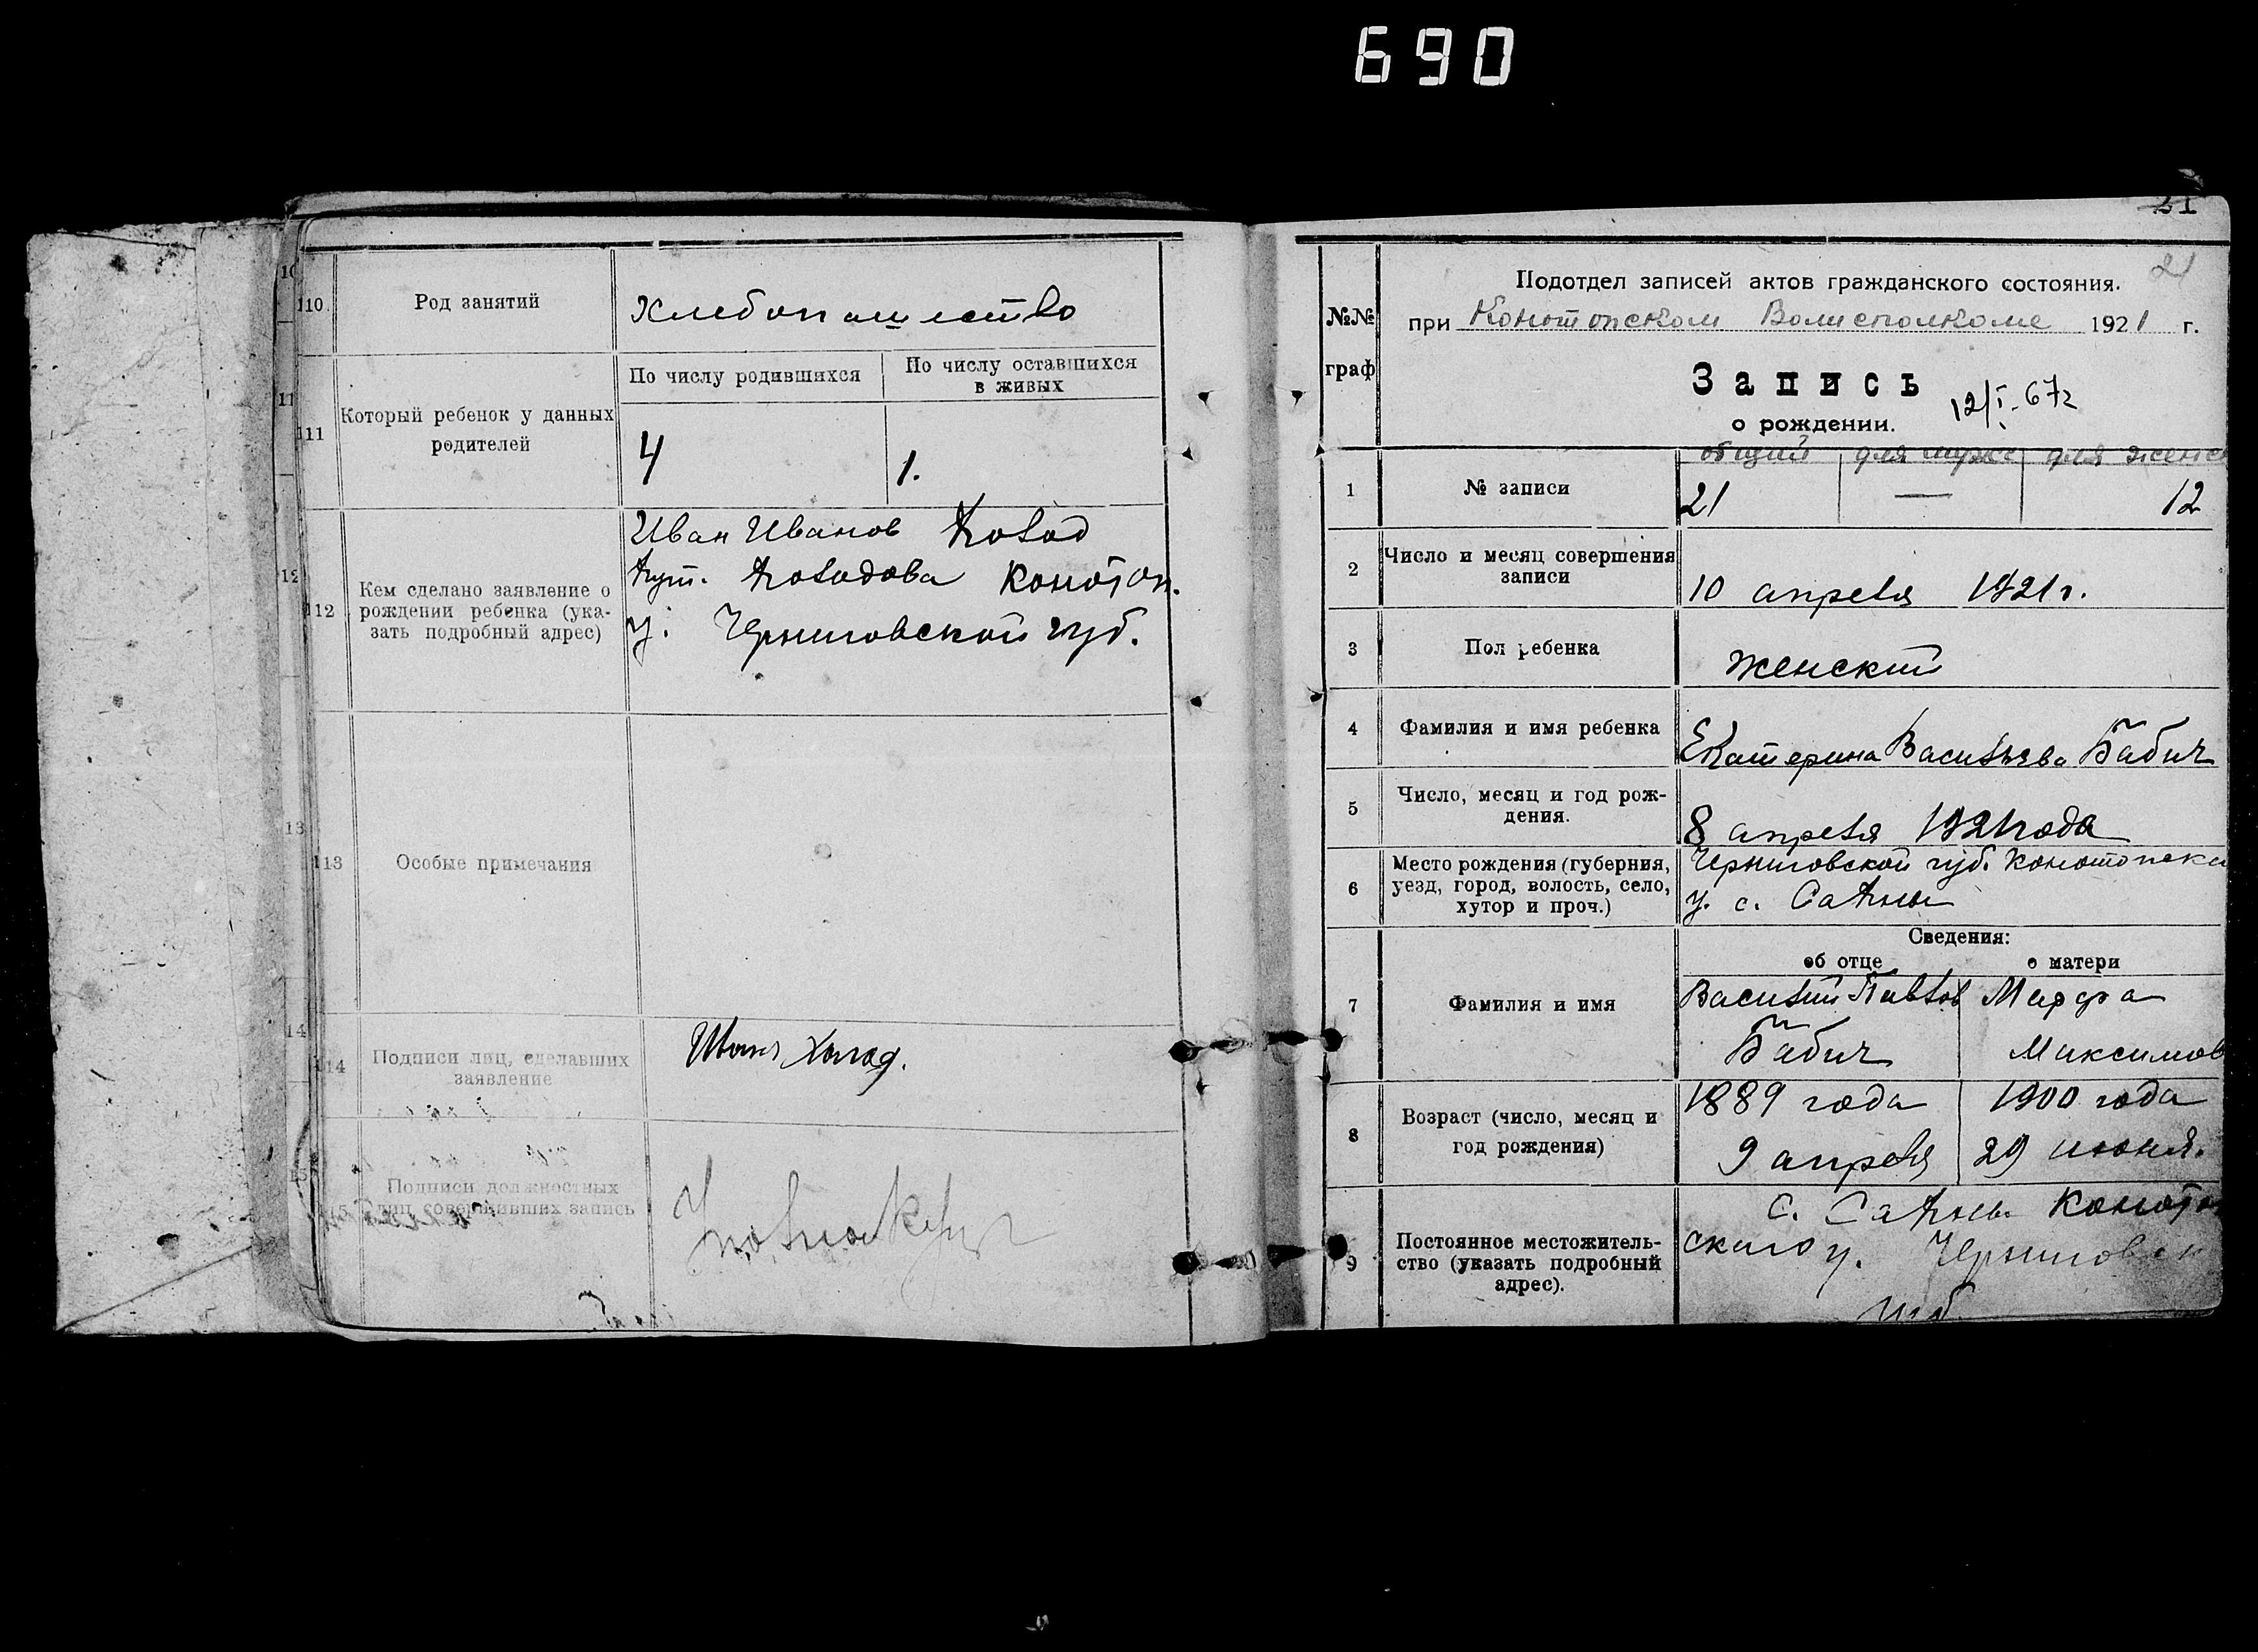 690
110
Род занятий
Хлебопашество
111
Который ребенок у данных
родителей
По числу родившихся
По числу оставшихся
в живых
4
1.
112
Кем сделано заявление о
рождении ребенка (ука-
зать подробный адрес)
Иван Иванов
хут. Конотоп.
у. Черниговской губ.
113
Особые примечания
114
Подписи лиц, сделавших
заявление
Подписи должностных
лиц, совершивших запись
21
21
№№
граф
Подотдел записей актов гражданского состояния.
при Конотопском Волисполкоме 1921 г.
Запись
12/I-67г
о рождении.
общий для мужс для женс
1
№ записи
21
—
12
2
Число и месяц совершения
записи
10 апреля 1921 г.
3
Пол ребенка
женский
4
Фамилия и имя ребенка
Екатерина Васильева Бабич
5
Число, месяц и год рож-
дения.
8 апреля 1921 года
6
Место рождения (губерния,
уезд, город, волость, село,
хутор и проч.)
Черниговской губ. Конотопска
у. с.
Сведения:
об отце
о матери
7
Фамилия и имя
Василий Павлов
Бабич
Марфа
Максимов
8
Возраст (число, месяц и
год рождения)
1889 года
9 апреля
1900 года
29 июня.
9
Постоянное местожитель-
ство (указать подробный
адрес).
с. Коното
ского у. Черниговск
губ.